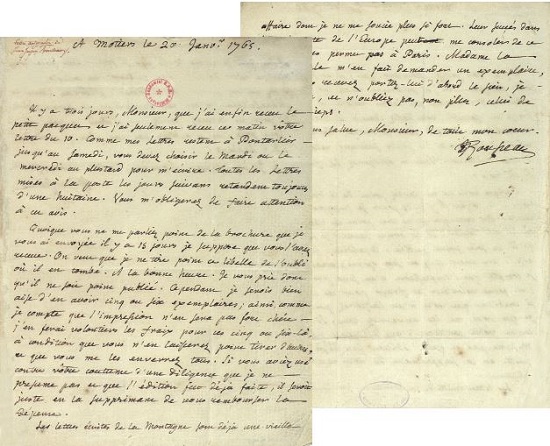 A Motiers le 20 Janvr. 1765.
Il y a trois jours, Monsieur, que j'ai enfin receu le
petit pacquet et j'ai seulement receu ce matin votre
lettre du 10. Comme mes lettres restent à Pontarlier
jusqu'au Samedi, vous devez choisir le Mardi ou le
mercredi au plustard pour m'écrire. Toutes les lettres
mises à la poste les jours suivans retardent toujours
d'une huitaine. Vous m'obligerez de faire attention
à cet avis.
Quoique vous ne me parliez point de la brochure que je
vous ai envoyée il y a 15 jours je suppose que vous l'avez
receue. On veut que je ne tire point ce libelle de l'oubli
où il est tombé. A la bonne heure. Je vous prie donc
qu'il ne soit point publié. Cependant je serois bien
aise d'en avoir cinq ou six exemplaires; ainsi comme
je compte que l'impression n'en sera pas fort chére
j'en ferai volontiers les fraix pour ces cinq ou six-là
à condition que vous n'en laisserez point tirer d'autres
et que vous me les enverrez tous. Si vous aviez usé
contre votre coutume d'une diligence que je ne
présume pas et que l'édition fut déja faite, il seroit
juste en la supprimant de vous rembourser la
dépense.
Les lettres écrites de la Montagne sont déja une vieille
affaire dont je ne me soucie plus si fort. Leur succés dans
de l'Europe me consoler de ce
permet pas à Paris. Madame la
m'en fait demander un exemplaire,
recevez portez-lui d'abord le sien, je
et n'oubliez pas, non plus, celui de
salue, Monsieur, de tout mon coeur.
JJRousseau